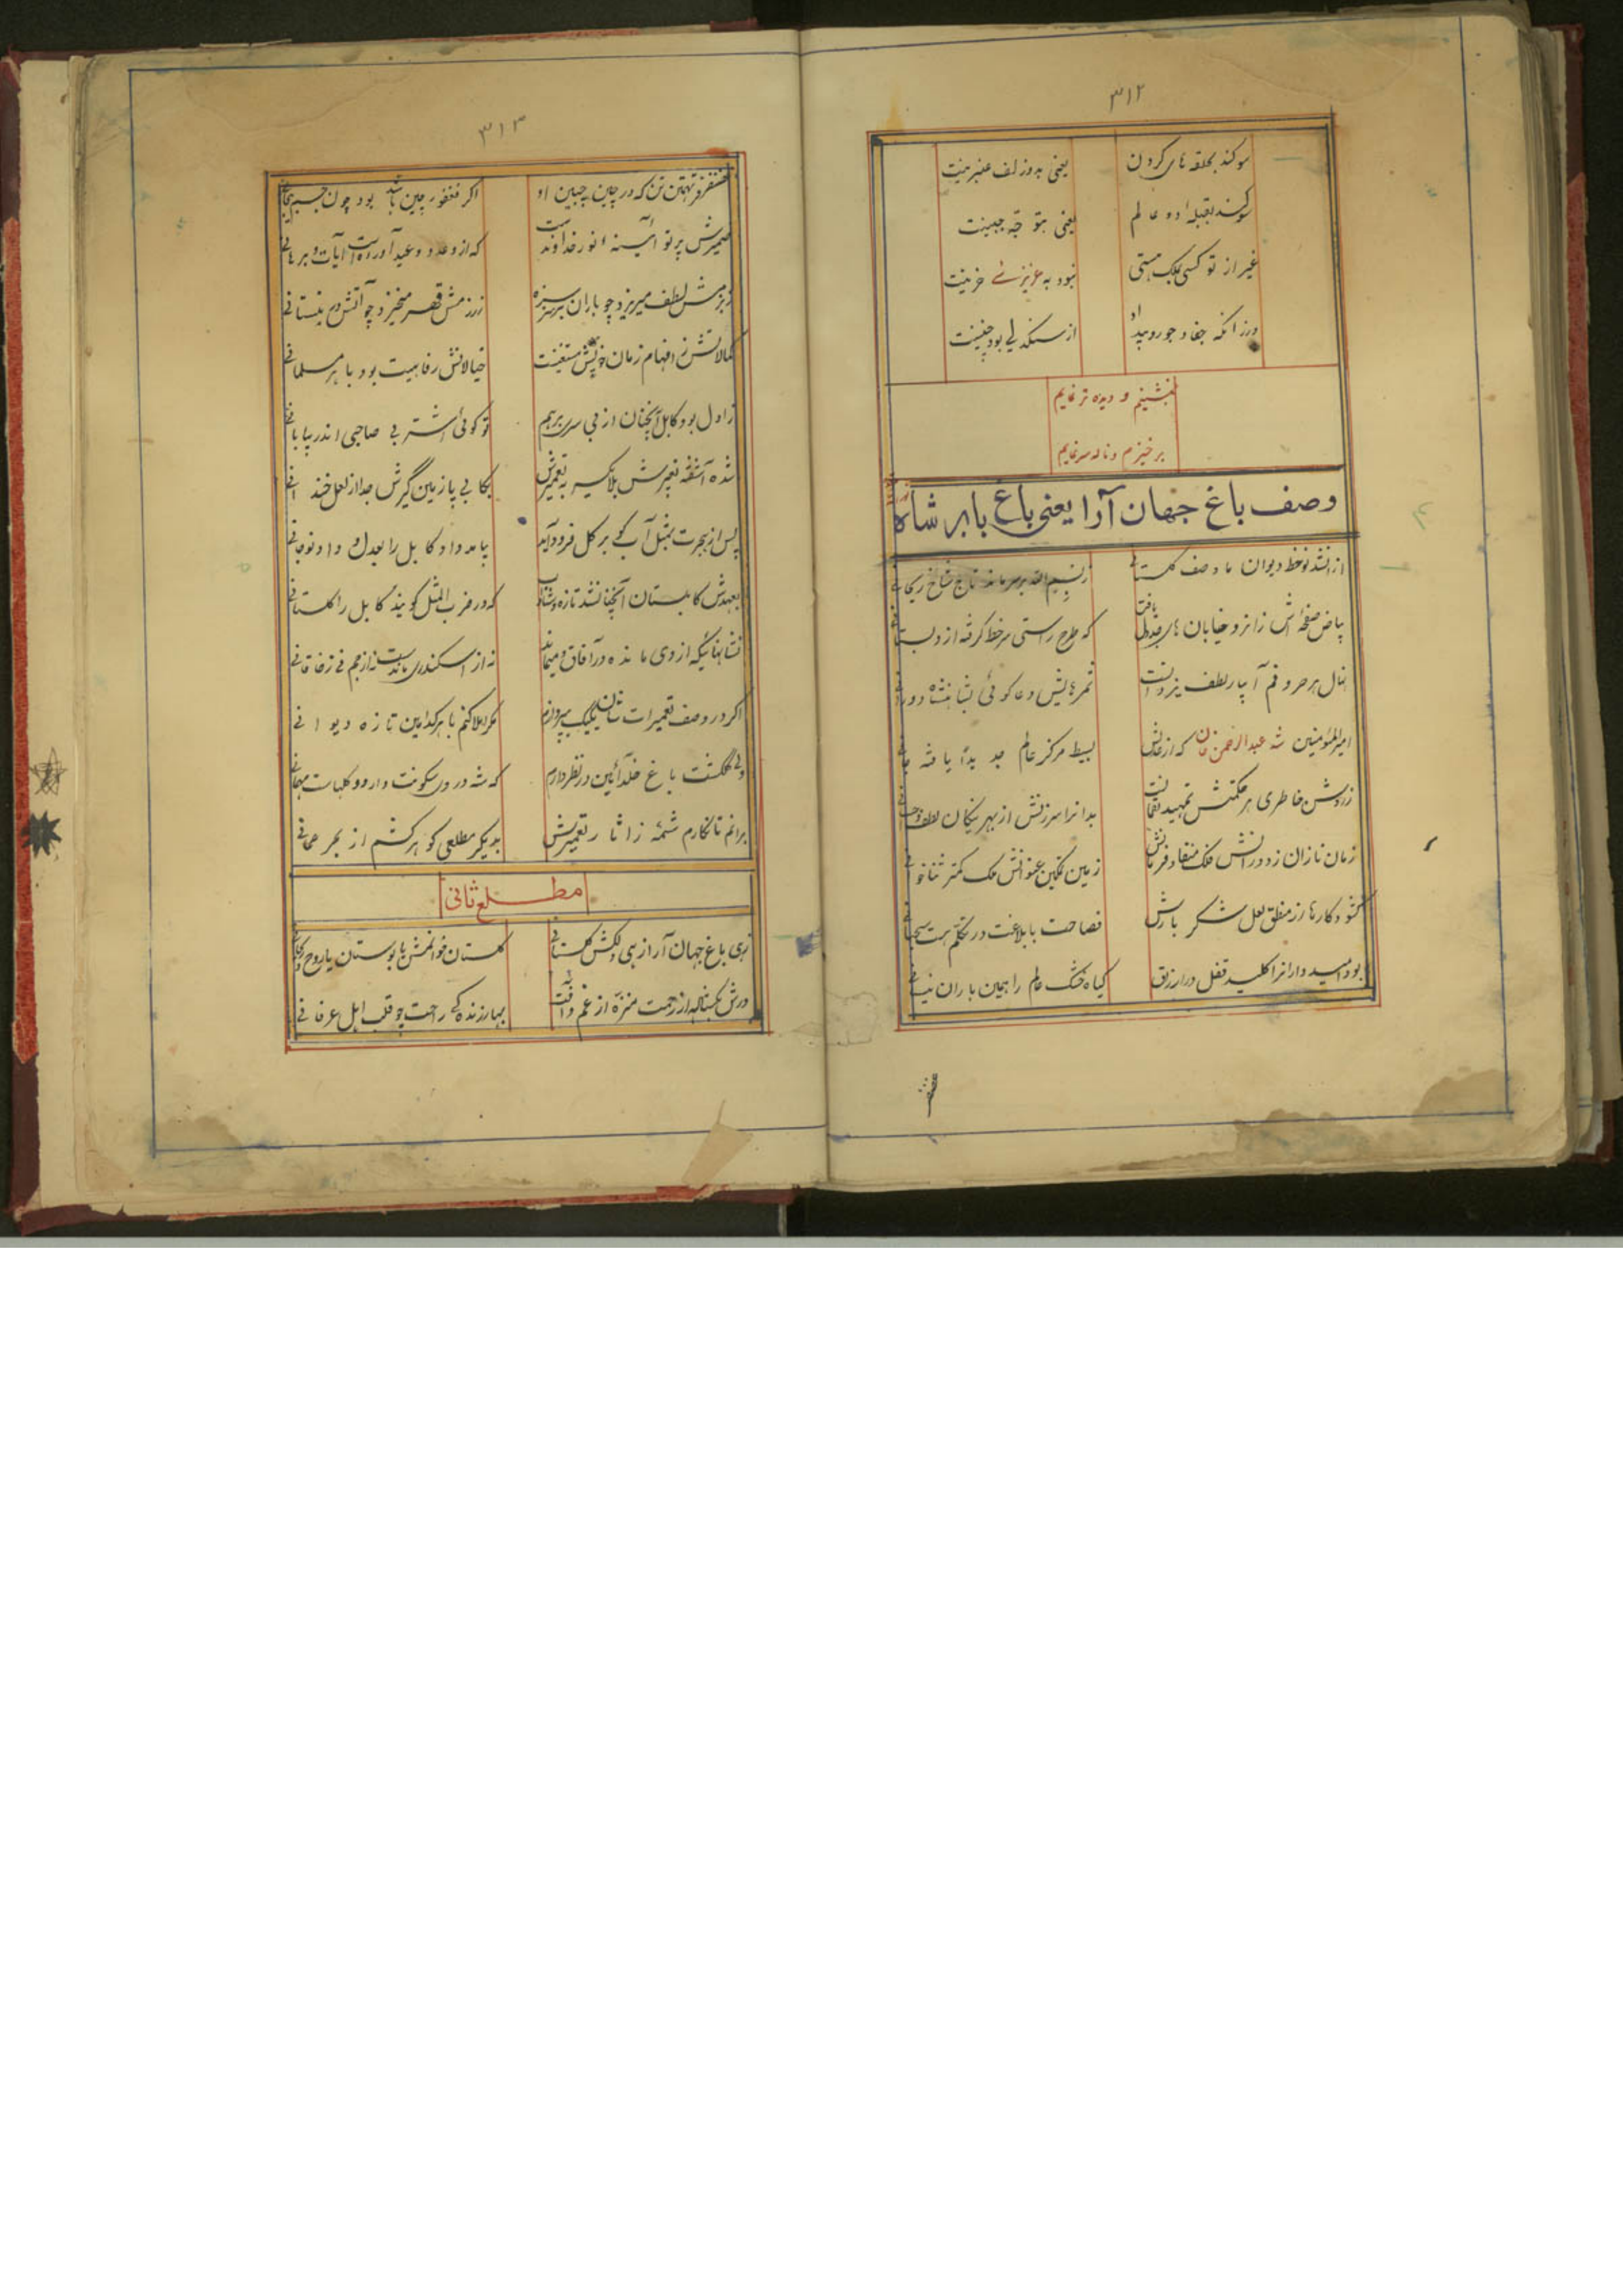 ۳۱۲
سوکند بحلقه های کردون
یعنی بدو زلف عنبرینت
سوکند بقبله دو عالم
یعنی بتو قبه جبینت
غیر از تو کسی بملک هستی
نبود به عزیزئی خزینت
ورزانکه جفا و جور و بیداد
از سنکدلی بود چنینت
بنشینم و دیده تر نمایم
برخیزم و ناله سر نمایم
وصف باغ جهان آرا یعنی باغ بابر شاه
از انشد نوخط دیوان ما وصف کلستانی
ز بسم الله بر سر ماند تاج شاخ ریحانی
بیاض صفحه اش زانرو خیابان های جدول یافت
که طرح راستی سرخط کرفته از دبستانی
نهال هر حروفم آبیار لطف یزدانست
ثمرهایش دعا کوئی شاهنشاه دورانی
امیر المؤمنین شه عبدالرحمن خان که از عدلش
بسیط مرکز عالم جدیداً یافته جانی
ز روشن خاطری هر حکمتش تمهید لقمانست
بدانرا سرزنش از بهر نیکان لطف و احسانی
زمان نازان ز دورانش فلک منقاد فرمانش
زمین تمکین عنوانش ملک کمتر ثنا خوانی
کشود کارها رزمفلق لعل شکر بارش
فصاحت با بلاغت در تکلم هست سحبانی
بود امید وارانرا کلید قفل در ارزاق
کیاه خشک عالم را همین باران نیسانی
۳۱۳
غضنفر فر تهمتن تن که در چین جبین او
اکر فغفور چین باشد بود چون جسم بیجانی
ضمیرش پرتو آئینه انور خداوندست
که از وعد و وعید آورده است آیات و برهانی
ز بزمش لطف میریزد چو باران بر سر سبزه
ز رزمش قهر میخیزد چو آتش در نیستانی
کمالاتش ز افهام زمان خویش مستغنیست
خیالاتش رفاهیت بود با هر مسلمانی
ز اول بود کابل آنچنان از بی سری برهم
تو کوئی اشتر بی صاحبی اندر بیابانی
شده آشفته تعمیرش بلا تکسیر به تعمیرش
پس از هجرت بمثل آب کو بر کل فرود آید
بیامد داد کابل را بعدل و داد نوجانی
بعهدش کابلستان آنچنان شد تازه و شاداب
که در ضرب المثل کویند کابل را کلستانی
نشانهائیکه از وی مانده در آفاق و میماند
نه از اسکندری ماندست نه از جم نی ز خاقانی
اکر در وصف تعمیرات شان یکیک بپردازم
مکر املا کنم با هر کدامین تازه دیوانی
ولی کلکشت باغ خلد آئین در نظر دارم
که شه در وی سکونت دارد و کلهاست مهمانی
برانم تا نکارم شمئه ز آثار تعمیرش
بدیکر مطلعی کوهر کشم از بحر عمانی
مطلع ثانی
زهی باغ جهان آرا زهی دلکش کلستانی
کلستان خوانمش یا بوستان یا روح و ریحانی
درش بکشاله از رحمت منزه از غم و آفت
بهار زندکی راحت چو قلب اهل عرفانی